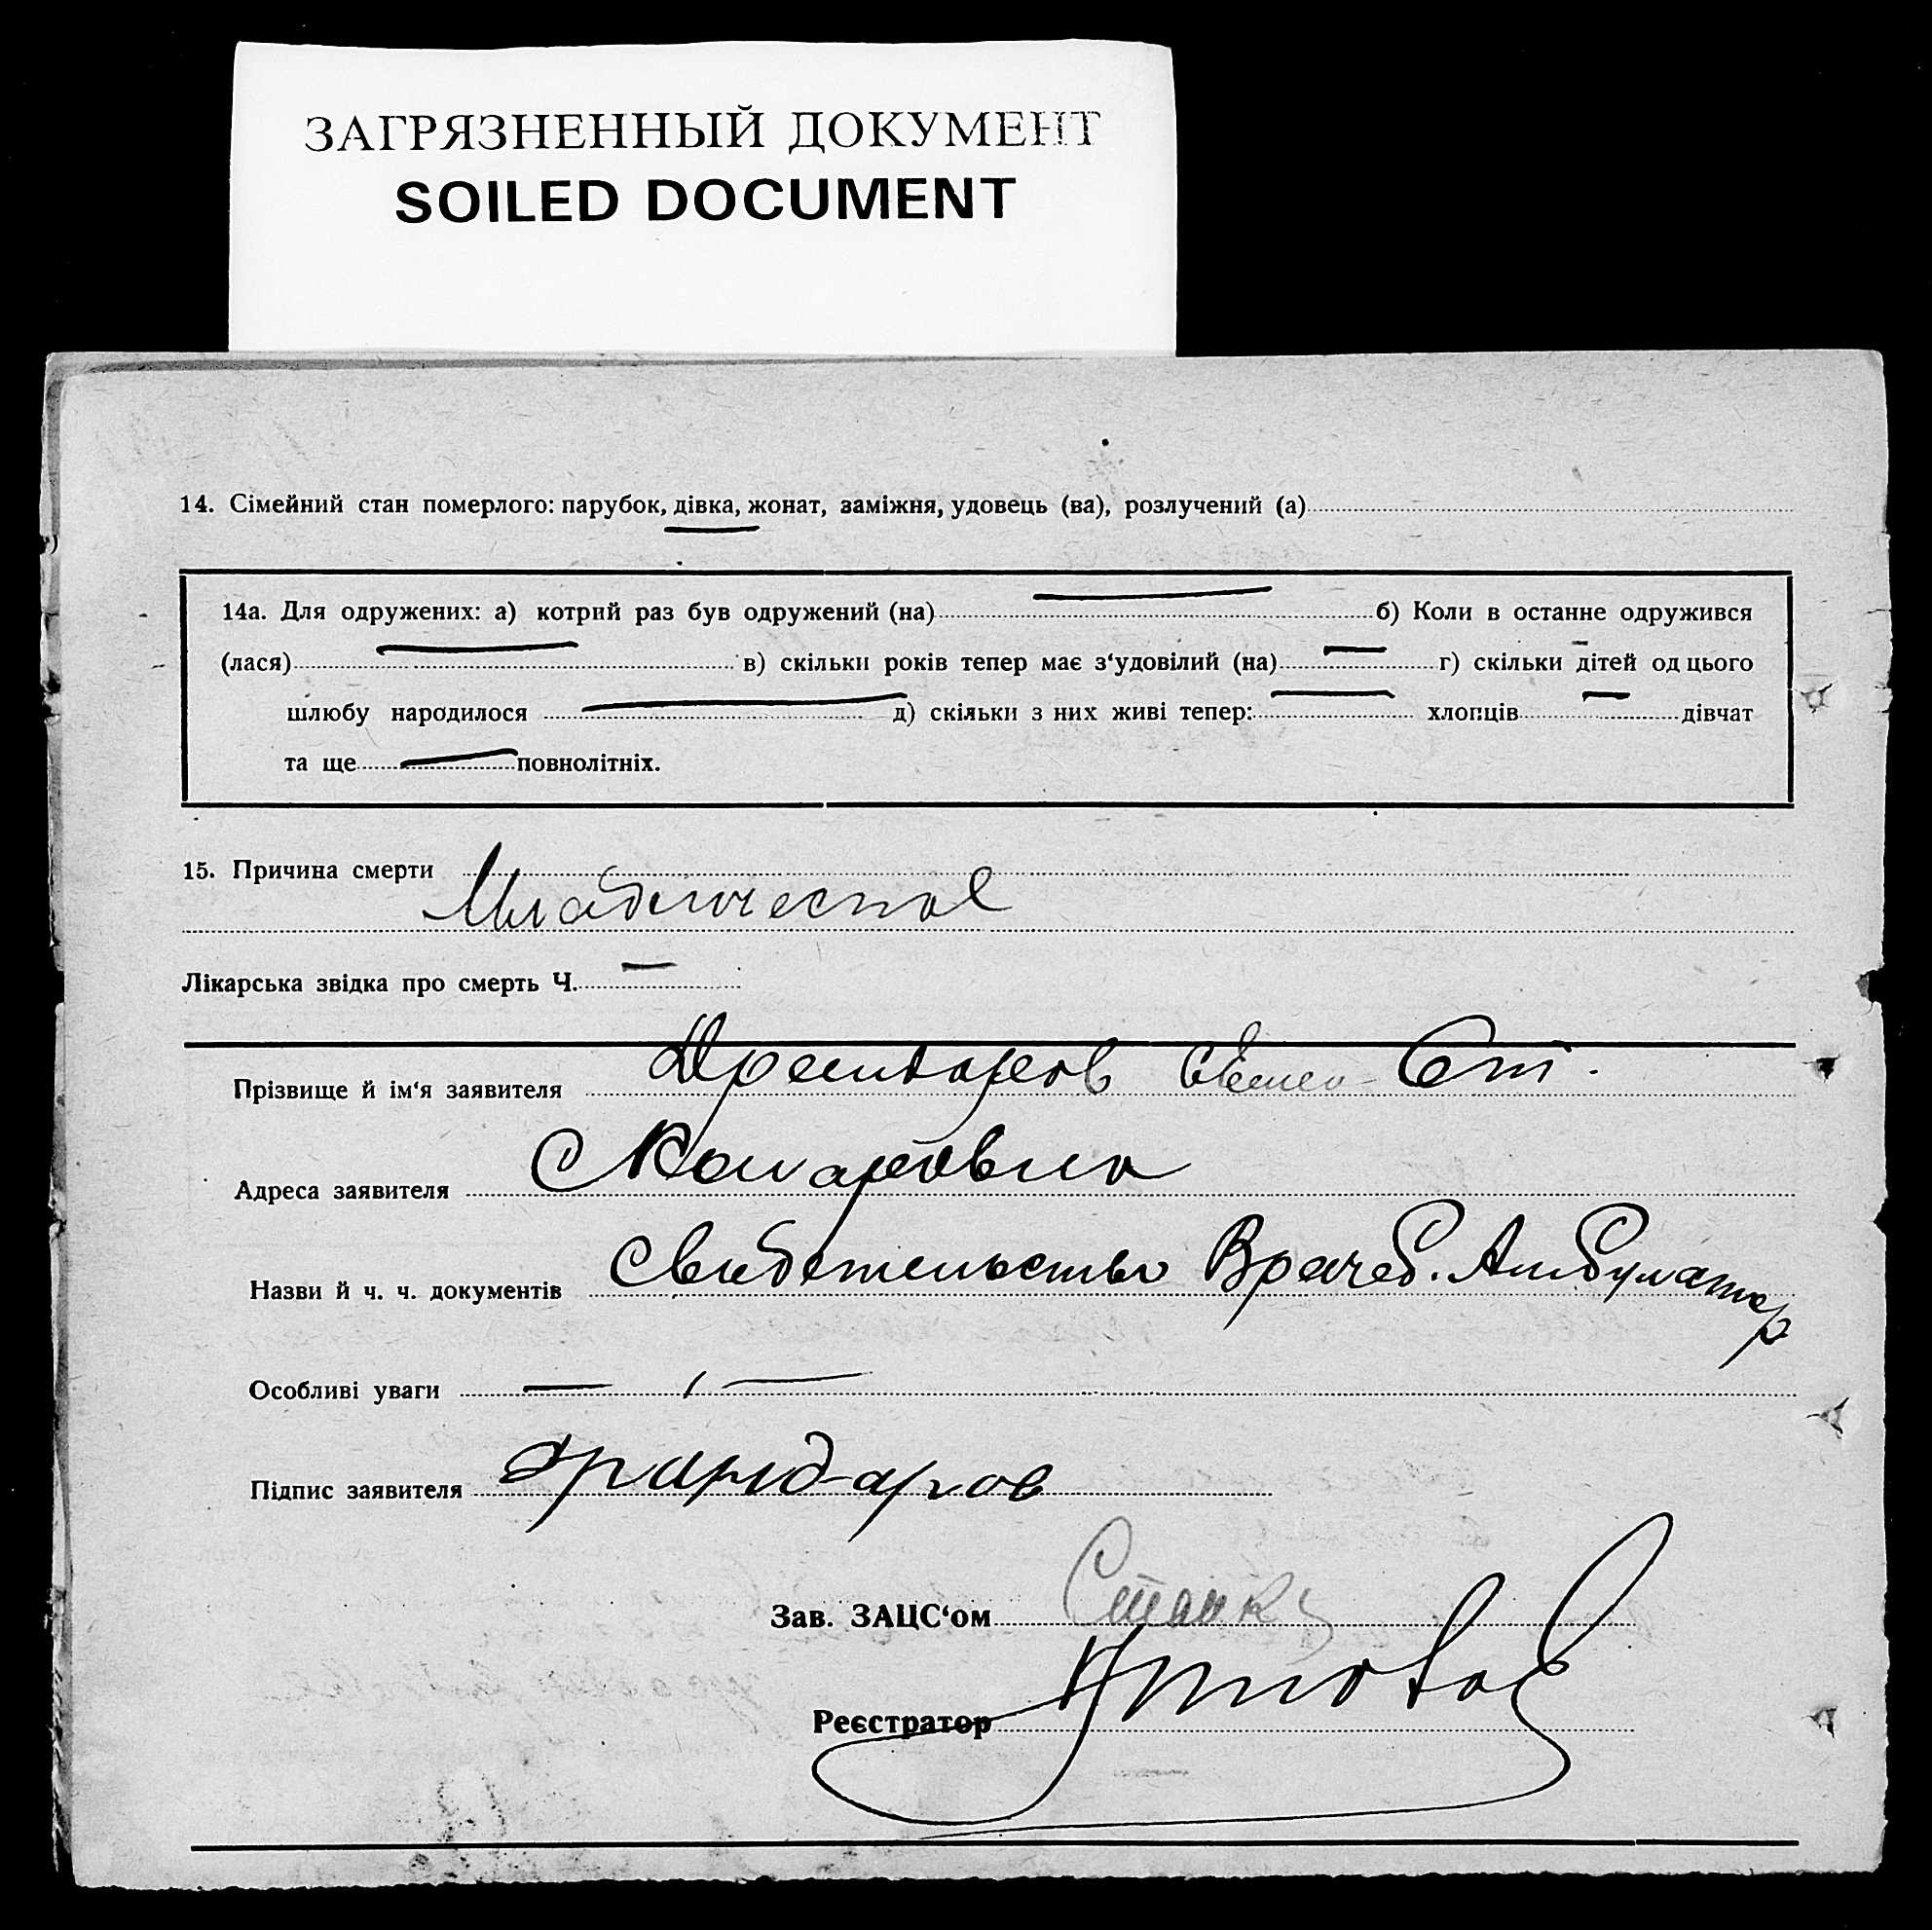 ЗАГРЯЗНЕННЫЙ ДОКУМЕНТ
SOILED DOCUMENT
14. Сімейний стан померлого: парубок, дівка, жонат, заміжня, удовець (ва), розлучений (а)
14а. Для одружених: а) котрий раз був одружений (на) — б) Коли в останне одружився
(лася) — в) скільки років тепер має з‘удовілий (на) — г) скільки дітей од цього
шлюбу народилося — д) скільки з них живі тепер: — хлопців — дівчат
та ще — повнолітніх.
15. Причина смерти
Младенческая
Лікарська звідка про смерть Ч. —
Прізвище й ім‘я заявителя
Адреса заявителя С Комаровка
Назви й ч. ч. документів Свидетельство Врачеб. Амбулатор
Особливі уваги — —
Підпис заявителя
Зав. ЗАЦС‘ом
Реєстратор